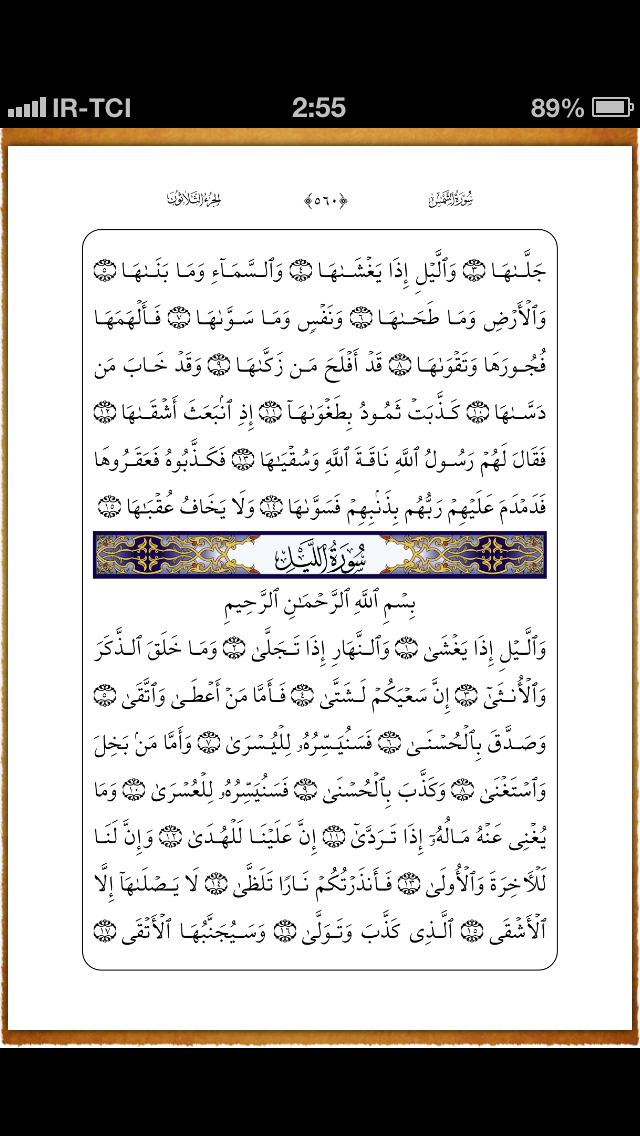 IR-TCI 2:55 89%
سُورَةُ الشَّمْسِ ﴿٥٦٠﴾ الجُزءُ الثَّلاثُونَ
جَلَّىٰهَا ٣ وَٱلَّيْلِ إِذَا يَغْشَىٰهَا ٤ وَٱلسَّمَآءِ وَمَا بَنَىٰهَا ٥
وَٱلْأَرْضِ وَمَا طَحَىٰهَا ٦ وَنَفْسٍ وَمَا سَوَّىٰهَا ٧ فَأَلْهَمَهَا
فُجُورَهَا وَتَقْوَىٰهَا ٨ قَدْ أَفْلَحَ مَن زَكَّىٰهَا ٩ وَقَدْ خَابَ مَن
دَسَّىٰهَا ١٠ كَذَّبَتْ ثَمُودُ بِطَغْوَىٰهَآ ١١ إِذِ ٱنۢبَعَثَ أَشْقَىٰهَا ١٢
فَقَالَ لَهُمْ رَسُولُ ٱللَّهِ نَاقَةَ ٱللَّهِ وَسُقْيَٰهَا ١٣ فَكَذَّبُوهُ فَعَقَرُوهَا
فَدَمْدَمَ عَلَيْهِمْ رَبُّهُم بِذَنۢبِهِمْ فَسَوَّىٰهَا ١٤ وَلَا يَخَافُ عُقْبَٰهَا ١٥
سُورَةُ اللَّيْلِ
بِسْمِ ٱللَّهِ ٱلرَّحْمَٰنِ ٱلرَّحِيمِ
وَٱلَّيْلِ إِذَا يَغْشَىٰ ١ وَٱلنَّهَارِ إِذَا تَجَلَّىٰ ٢ وَمَا خَلَقَ ٱلذَّكَرَ
وَٱلْأُنثَىٰٓ ٣ إِنَّ سَعْيَكُمْ لَشَتَّىٰ ٤ فَأَمَّا مَنْ أَعْطَىٰ وَٱتَّقَىٰ ٥
وَصَدَّقَ بِٱلْحُسْنَىٰ ٦ فَسَنُيَسِّرُهُۥ لِلْيُسْرَىٰ ٧ وَأَمَّا مَنۢ بَخِلَ
وَٱسْتَغْنَىٰ ٨ وَكَذَّبَ بِٱلْحُسْنَىٰ ٩ فَسَنُيَسِّرُهُۥ لِلْعُسْرَىٰ ١٠ وَمَا
يُغْنِى عَنْهُ مَالُهُۥٓ إِذَا تَرَدَّىٰٓ ١١ إِنَّ عَلَيْنَا لَلْهُدَىٰ ١٢ وَإِنَّ لَنَا
لَلْءَاخِرَةَ وَٱلْأُولَىٰ ١٣ فَأَنذَرْتُكُمْ نَارًا تَلَظَّىٰ ١٤ لَا يَصْلَىٰهَآ إِلَّا
ٱلْأَشْقَى ١٥ ٱلَّذِى كَذَّبَ وَتَوَلَّىٰ ١٦ وَسَيُجَنَّبُهَا ٱلْأَتْقَى ١٧